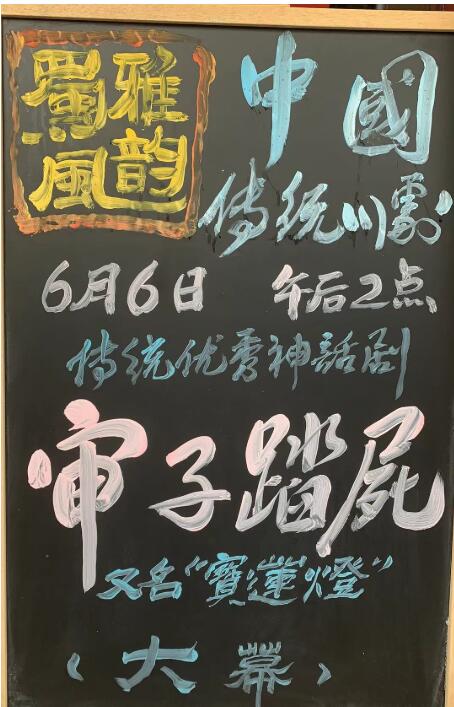 蜀風雅韵
中國
传统川劇
6月6日 午后2点
传统优秀神話剧
审子踏屍
又名"寶蓮燈"
(大幕)